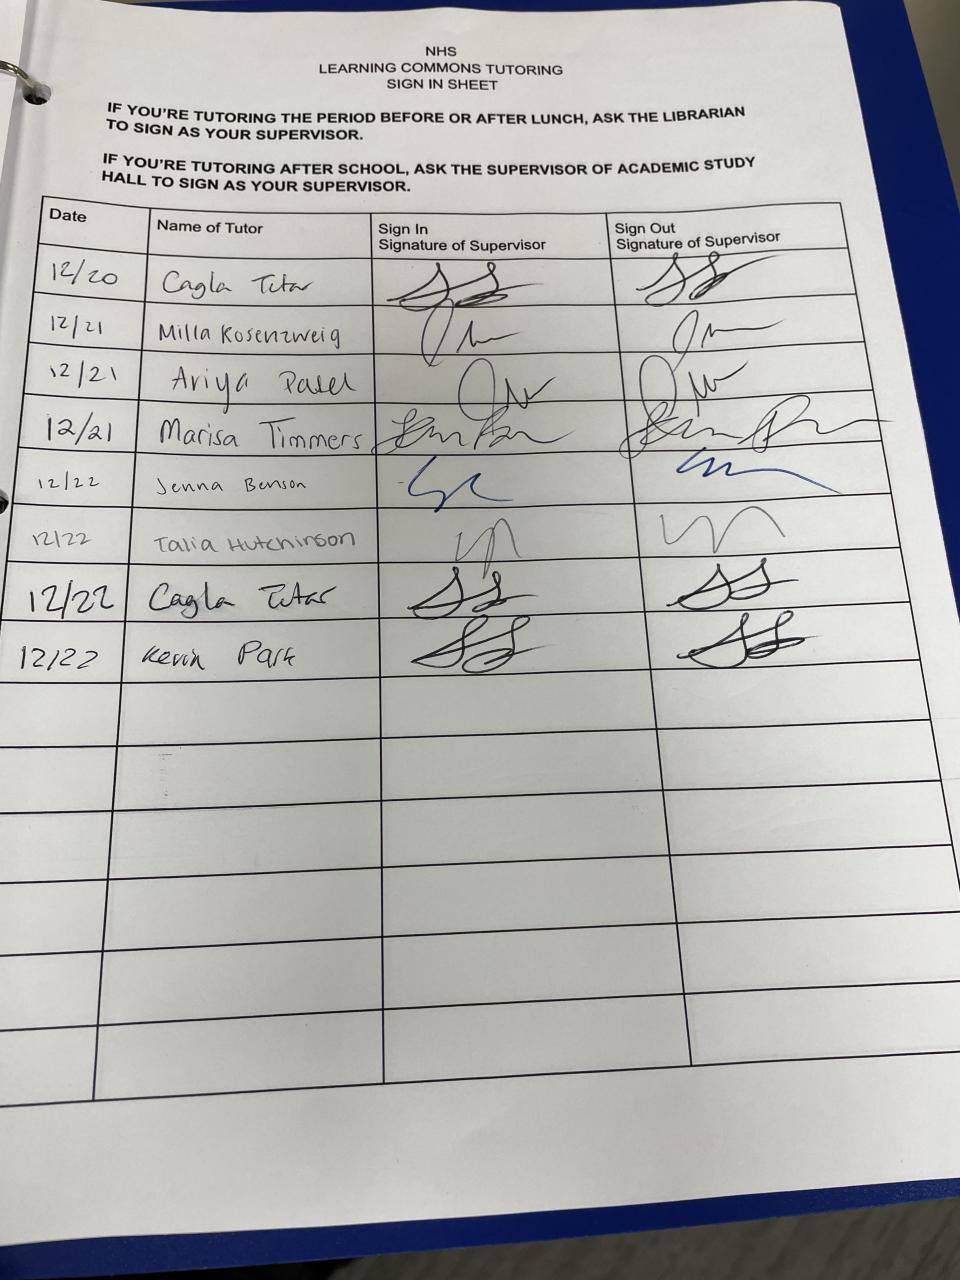 NHS
LEARNING COMMONS TUTORING
SIGN IN SHEET
IF YOU'RE TUTORING THE PERIOD BEFORE OR AFTER LUNCH, ASK THE LIBRARIAN
TO SIGN AS YOUR SUPERVISOR.
IF YOU'RE TUTORING AFTER SCHOOL, ASK THE SUPERVISOR OF ACADEMIC STUDY
HALL TO SIGN AS YOUR SUPERVISOR.
Date Name of Tutor Sign In Sign Out
Signature of Supervisor Signature of Supervisor
12/20 Cagla Tutar
12/21 Milla Rosenzweig
12/21 Ariya Patel
12/21 Marisa Timmers
12/22 Jenna Benson
12/22 Talia Hutchinson
12/22 Cagla Tutar
12/22 Kevin Park